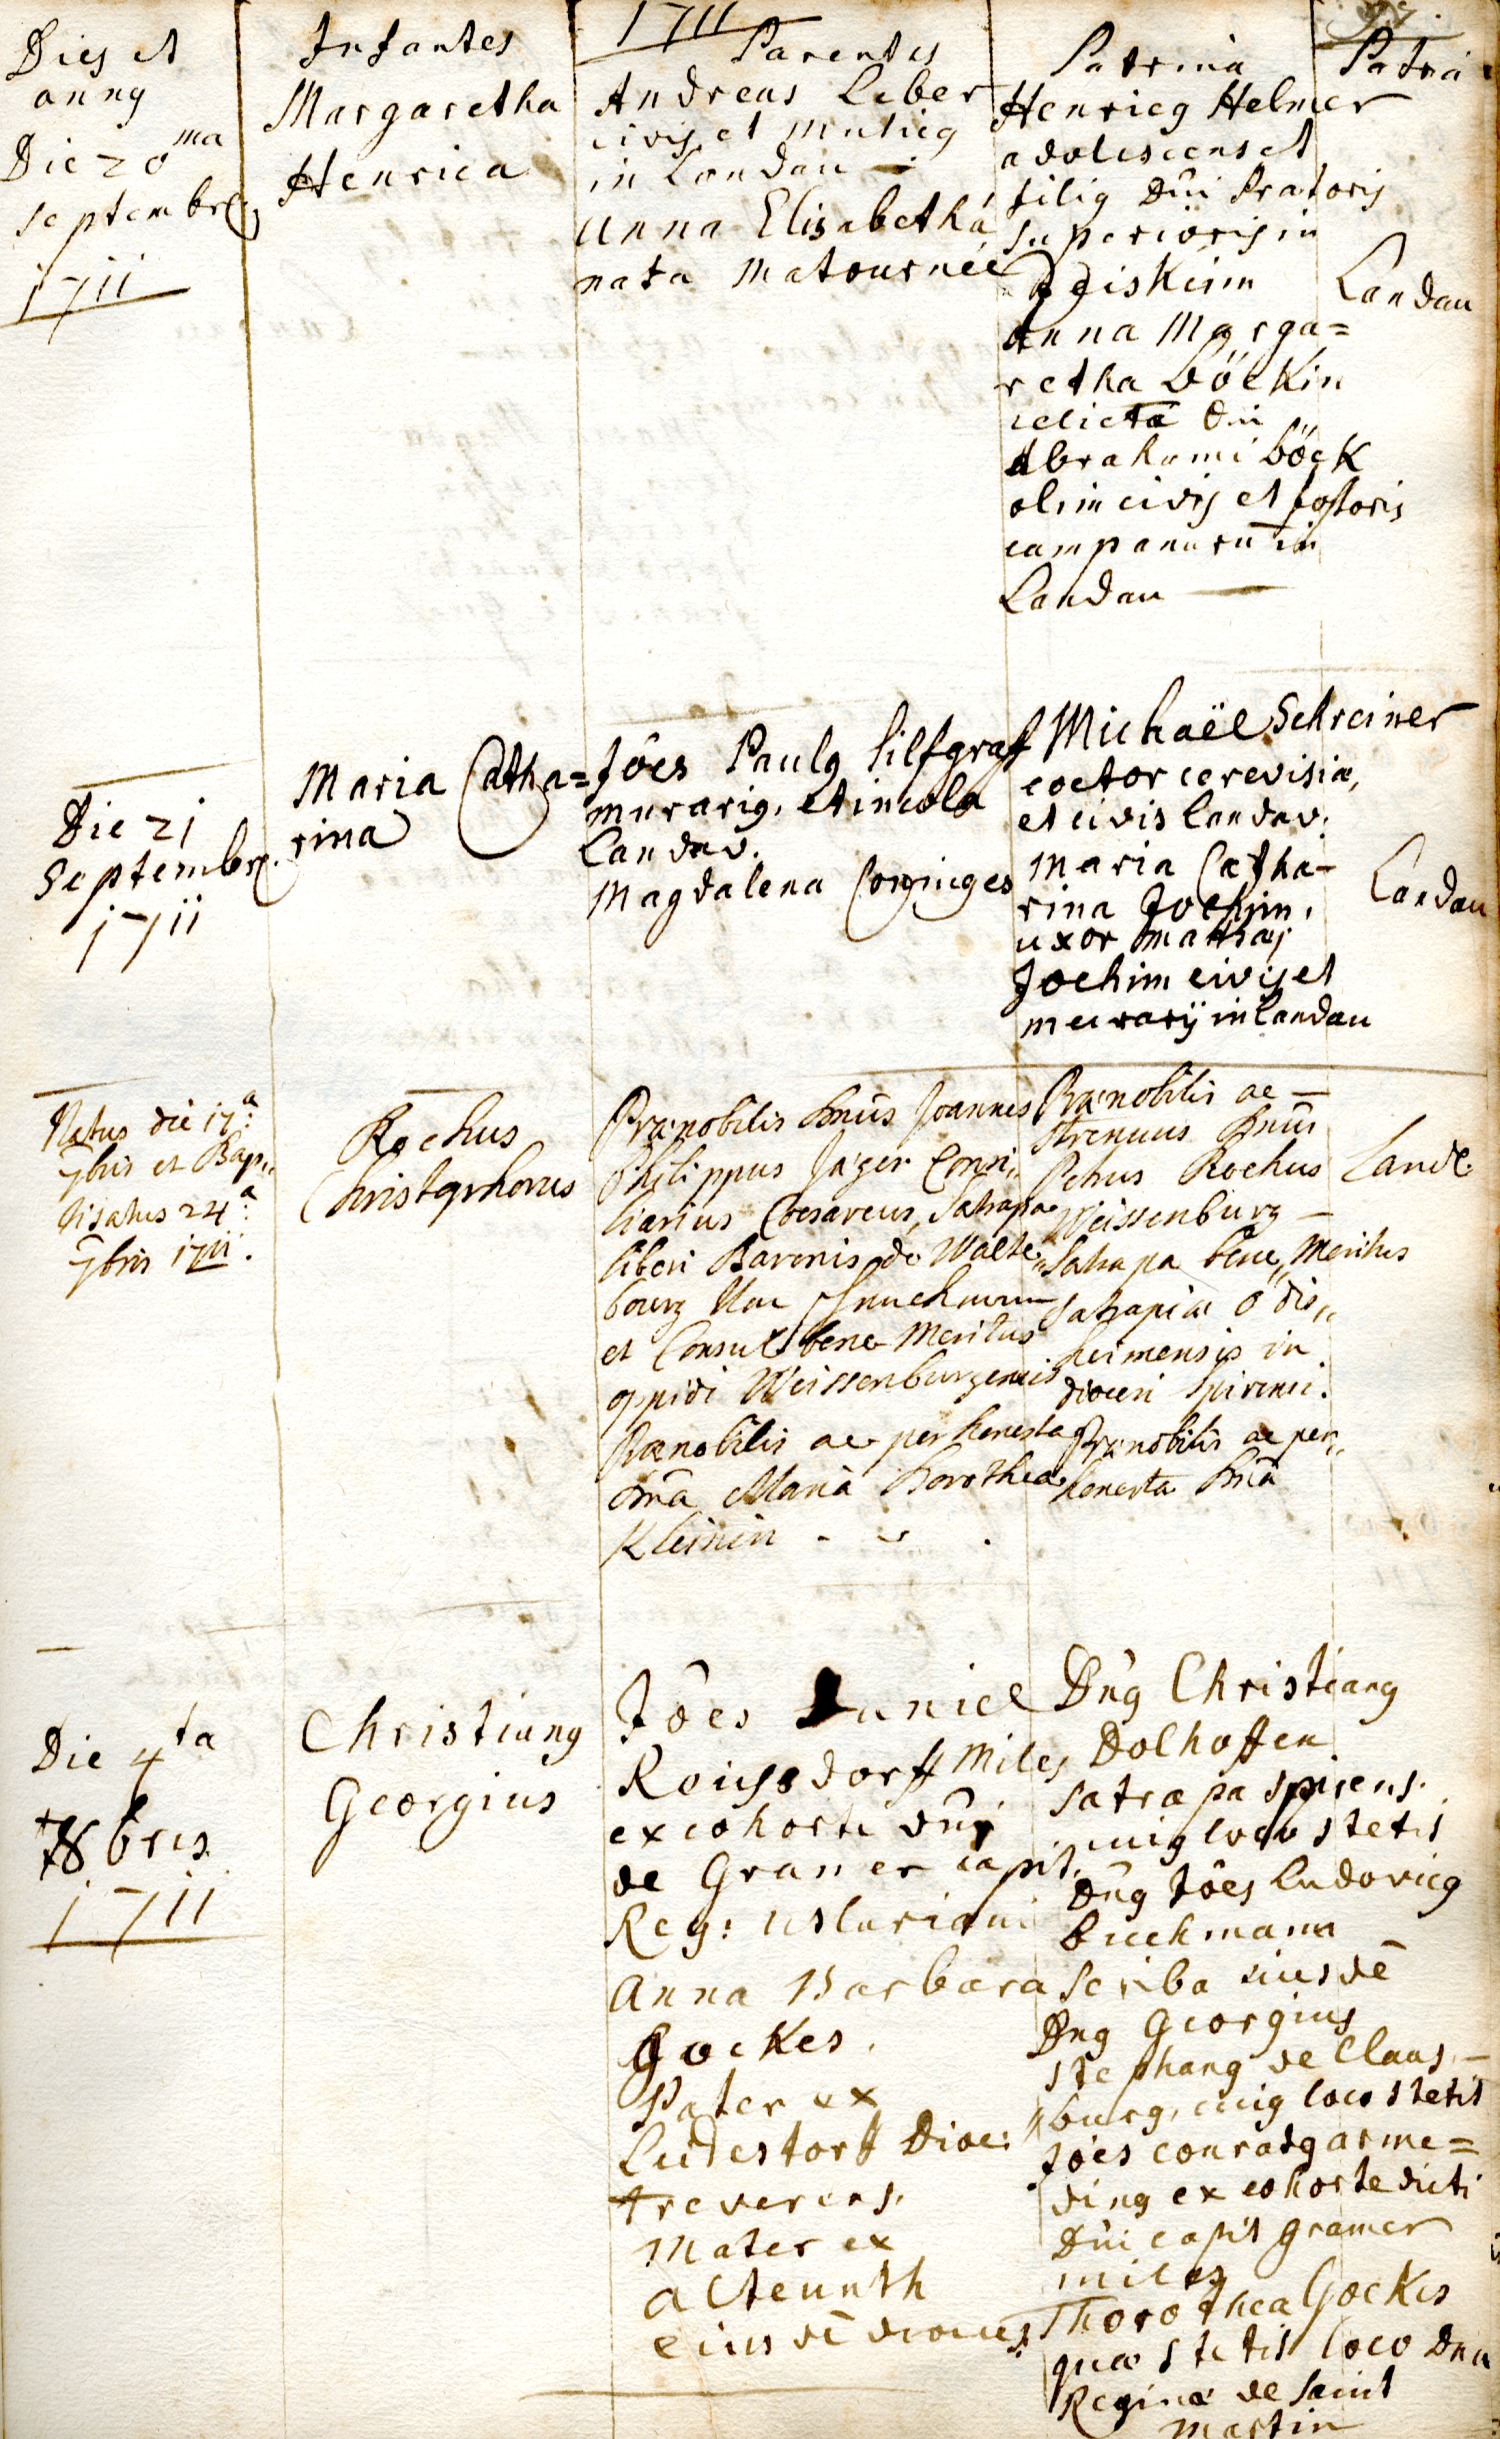 1711
Dies et
annus
Infantes
Parentes
Patrini
Patria
Die 20ma
Septembris
1711
Margaretha
Henrica
Andreas Leber
civis et
in Landau
Anna Elisabetha
nata Matournée
Henricus Helmer
adolescens et
filius Dni Prætoris
superioris in
Anna Marga=
retha Böckin
relicta Dni
Abrahami Böck
olim civis et fosoris
campanarū in
Landau
Landau
Die 21
Septembr.
1711
Maria Catha=
rina
Jôes Paulus Silfgraff
murarius, et incola
Landav.
Magdalena Conjuges
Michaël Schreiner
coctor cerevisiæ,
et civis Landav.
Maria Catha-
rina Jochim,
uxor Mathæi
Jochim civis et
murarij in Landau
Landau
Natus die 17a
7bris et Bap„
tisatus 24a
7bris 1711.
Rochus
Christophorus
Prænobilis Dnûs Joannes
Philippus Jäger Consi„
liarius Cæsareus, Satrapa
liberi Baronis de Walte„
bourg
et Consul bene Meritus
oppidi Weissenburgensis
Prænobilis ac per honesta
Dnâ Maria Dorothea
Kleinin
Prænobilis ac
strenuus Dnûs
Petrus Rochus
Weissenburg
Satrapa bene Meritus
Satrapiæ Odis„
heimensis in
diœcesi Spirensi.
Prænobilis ac per„
honesta Dnâ
Die 4ta
8bris
1711
Christianus
Georgius
Jôes Daniel
Roisdorff Miles
ex cohorte Dnj
de Gramer capit.
Reg:
Anna Barbara
Gockes.
Pater ex
Leidestorff Dioec:
Treverens.
Mater ex
Altenrath
eiusdē dioeces.
Dñus Christianus
Dolhoffen
satrapa spirens.
cuius loco stetit
Dñus Jôes Ludovicus
Buchmann
scriba eiusdē
Dnus Georgius
Stephanus de Claus-
burg, cuius loco stetit
Jôes Conradus Arme=
ding ex cohorte dicti
Dni capit Gramer
miles
Thorothea Gockes
quæ stetit loco Dnæ
Reginæ de Saint
Martin